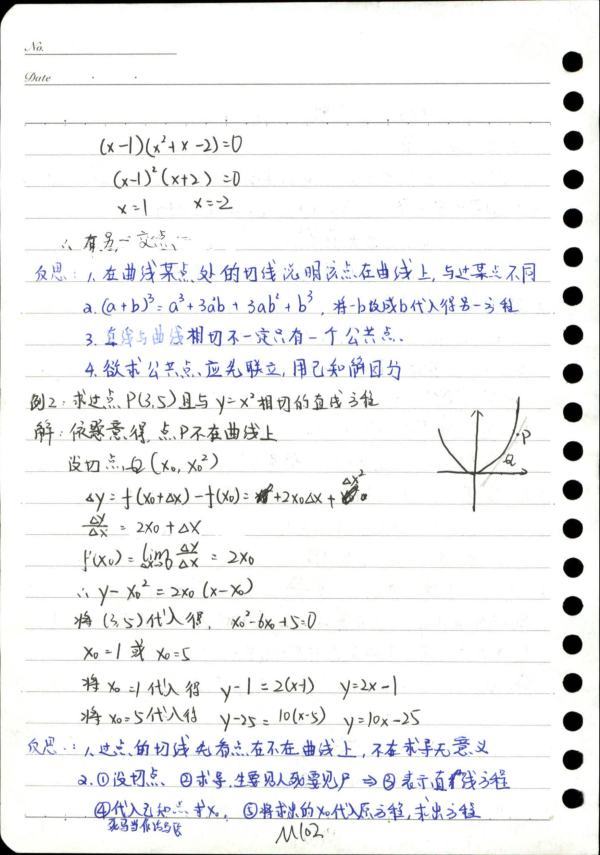 No.
Date
(x-1)(x²+x-2)=0
(x-1)²(x+2)=0
x=1 x=-2
∴有另一交点
反思:1.在曲线某点处的切线说明该点在曲线上,与过某点不同
2.(a+b)³=a³+3a²b+3ab²+b³,将-b改成b代入得另一方程
3.直线与曲线相切不一定只有一个公共点.
4.欲求公共点,应先联立,用已知解因分
例2:求过点P(3,5)且与y=x²相切的直线方程
解:依题意得,点P不在曲线上
设切点Q(x₀,x₀²)
P
Q
Δy=f(x₀+Δx)-f(x₀)=2x₀Δx+Δx²
Δy/Δx=2x₀+Δx
f'(x₀)=lim Δx→0 Δy/Δx=2x₀
∴y-x₀²=2x₀(x-x₀)
将(3,5)代入得,x₀²-6x₀+5=0
x₀=1或x₀=5
将x₀=1代入得 y-1=2(x-1) y=2x-1
将x₀=5代入得 y-25=10(x-5) y=10x-25
反思:1.过点的切线先看点在不在曲线上,不在求导无意义
2.①设切点 ②求导,生要见人死要见尸⇒③表示直线方程
④代入已知点求x₀, ⑤将求出的x₀代入原方程,求出方程